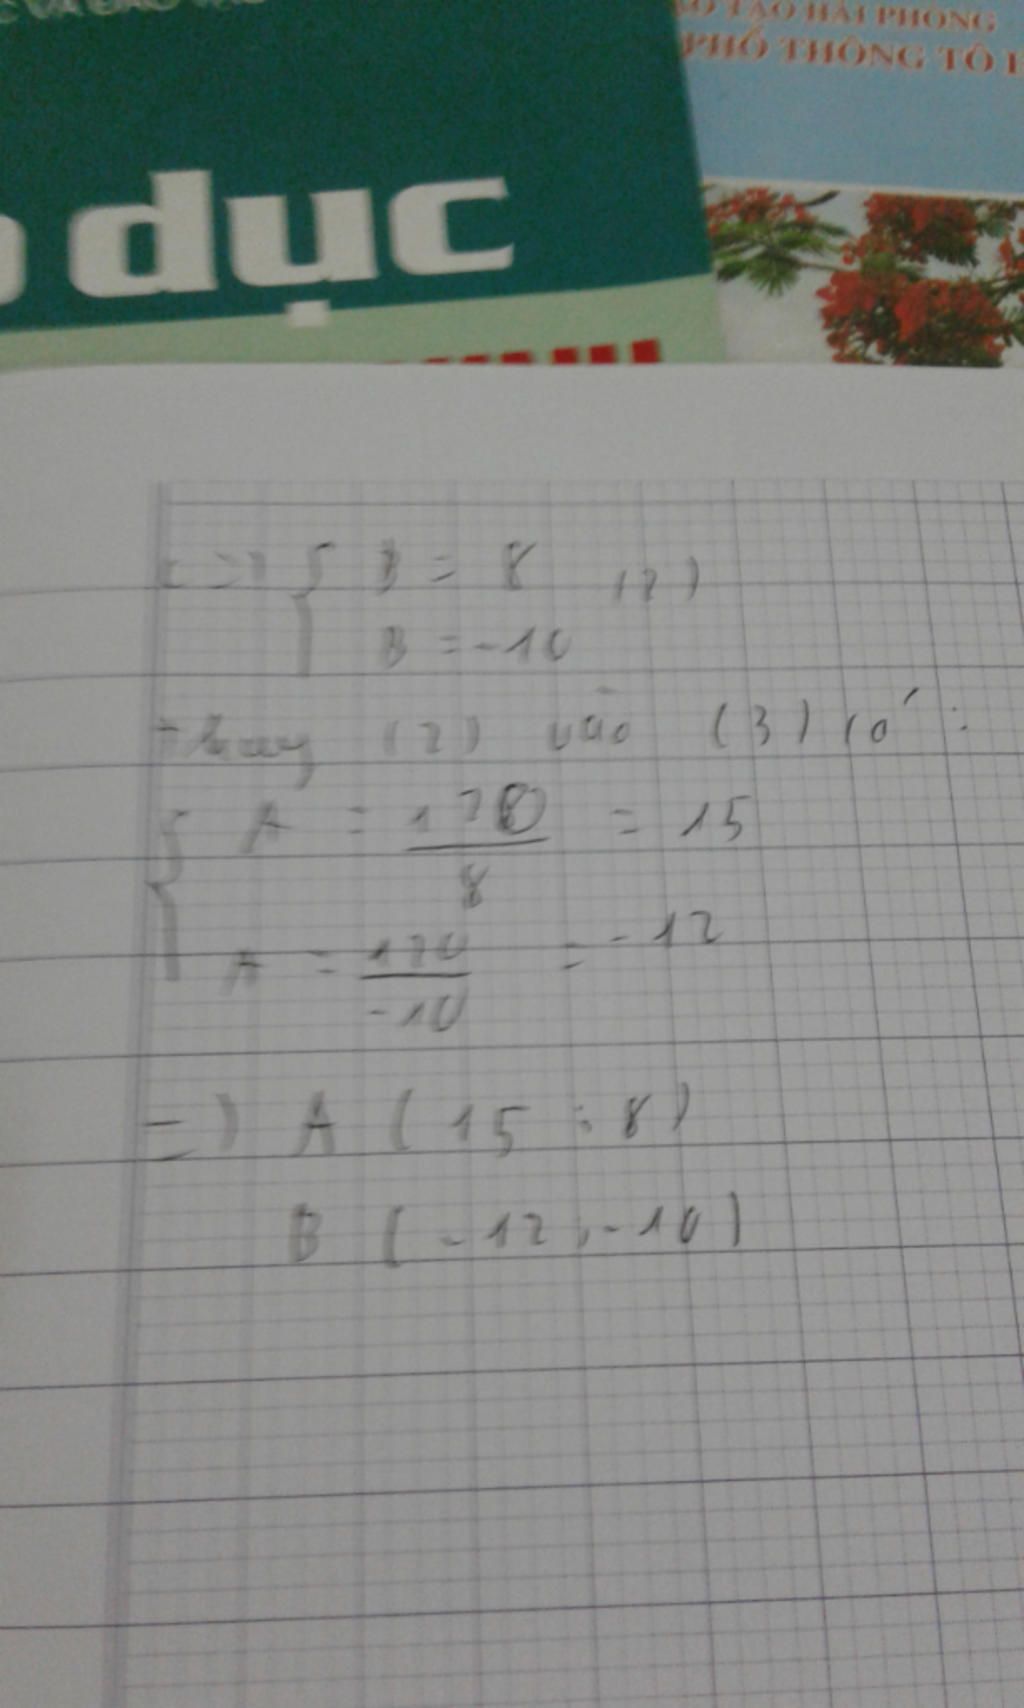 TẠO HẢI PHÒNG
PHỔ THÔNG TÔ
dục
<=> { B = 8 (2)
B = -10
Thay (2) vào (3) có :
{ A = 120/8 = 15
A = 120/-10 = -12
=) A (15 ; 8)
B (-12 ; -10)